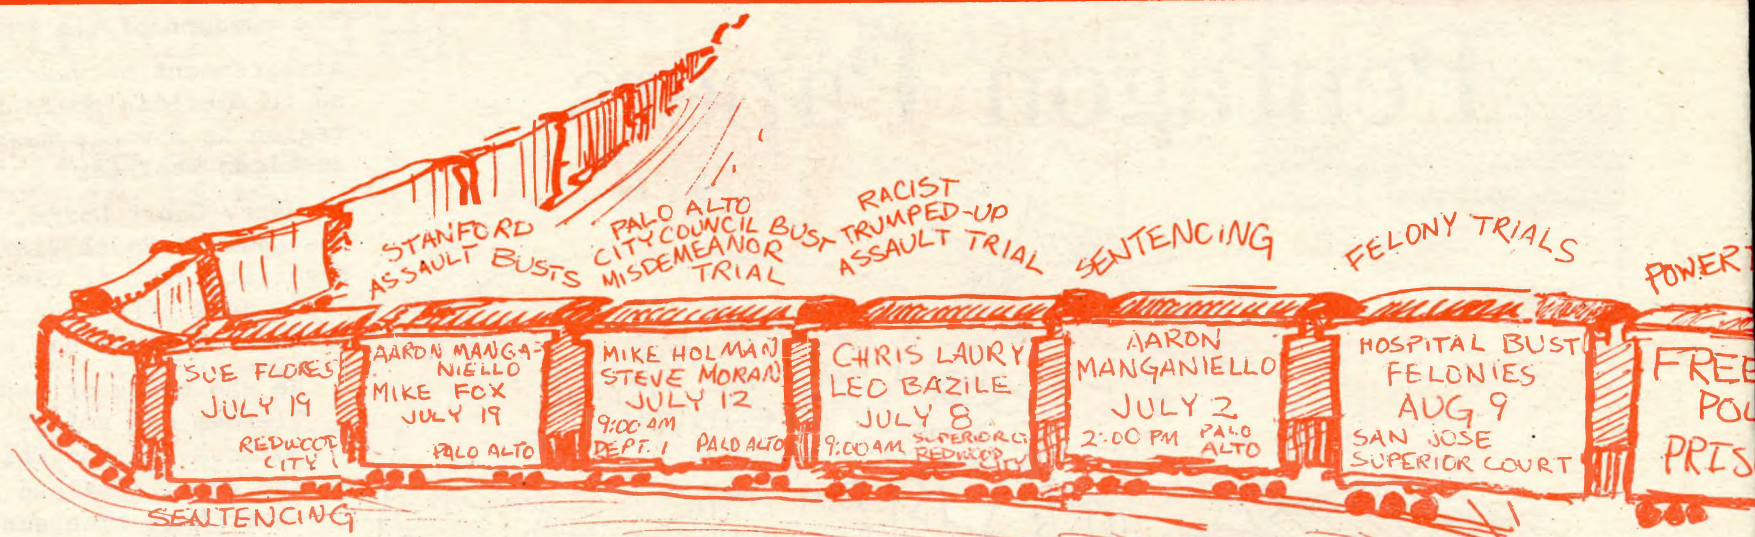 STANFORD
ASSAULT BUSTS
PALO ALTO
CITY COUNCIL BUST
MISDEMEANOR
TRIAL
RACIST
TRUMPED-UP
ASSAULT TRIAL
SENTENCING
FELONY TRIALS
POWER
SUE FLORES
JULY 19
REDWOOD
CITY
SENTENCING
AARON MANGA-
NIELLO
MIKE FOX
JULY 19
PALO ALTO
MIKE HOLMAN
STEVE MORAN
JULY 12
9:00 AM
DEPT. 1 PALO ALTO
CHRIS LAURY
LEO BAZILE
JULY 8
9:00 AM SUPERIOR
REDWOOD
CITY
AARON
MANGANIELLO
JULY 2
2:00 PM PALO
ALTO
HOSPITAL BUST
FELONIES
AUG 9
SAN JOSE
SUPERIOR COURT
FREE
POL
PRIS